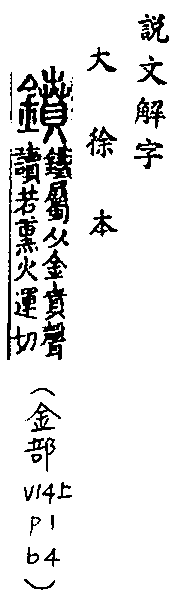 説文解字
大徐本
鐼鐵屬从金賁聲
讀若熏火運切
(金部
V14上
P1
b4)